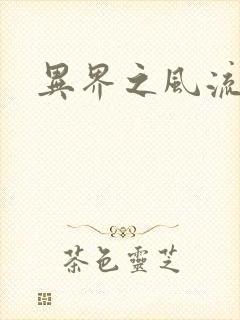 異界之風流
茶色靈芝